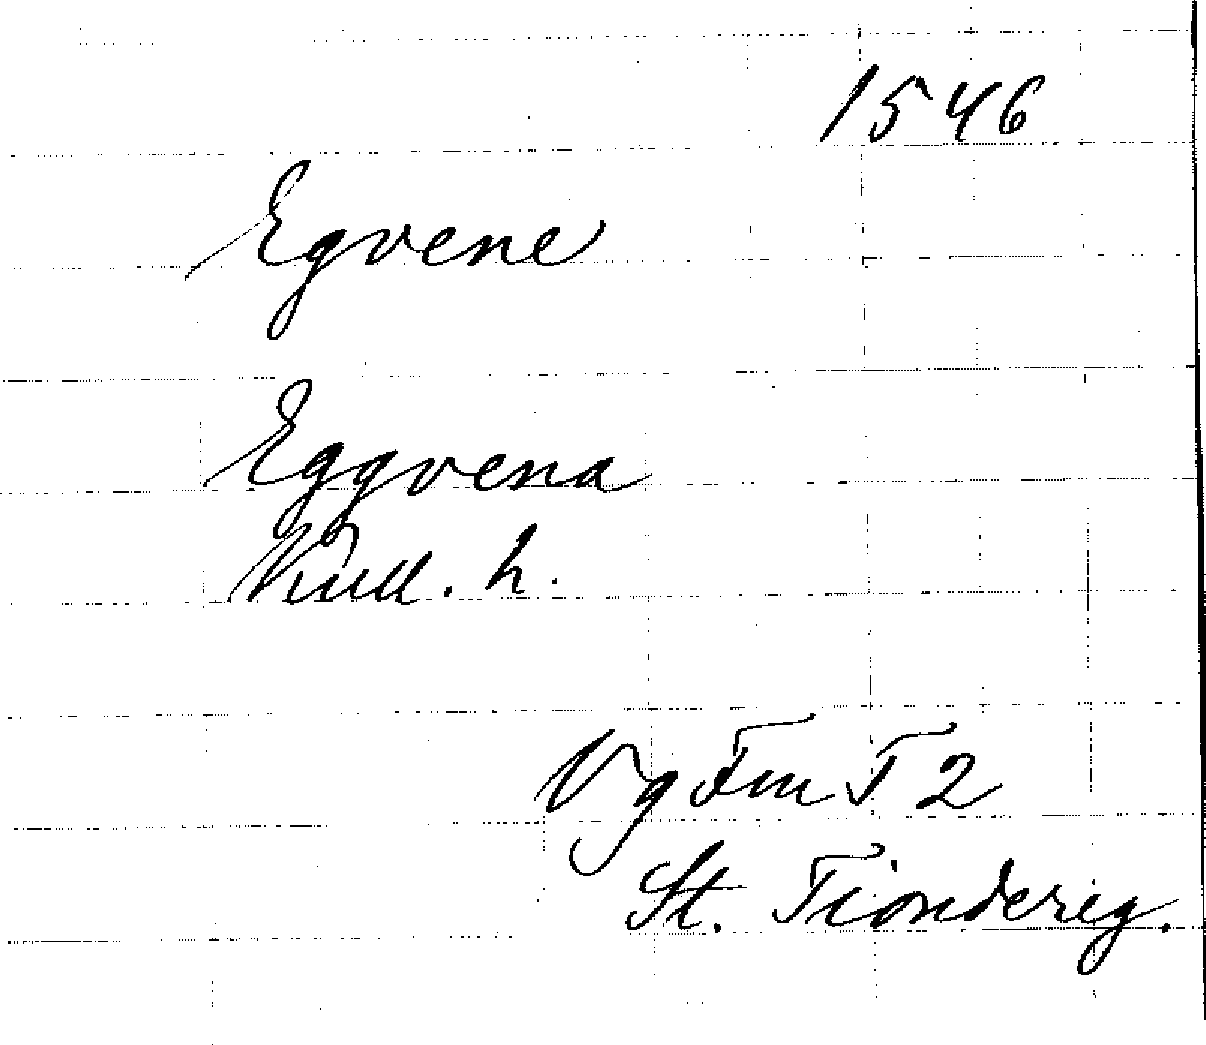 1546
Egvene
Eggvena
Kull. h.
Vg Fm T 2
St. Tiondereg.